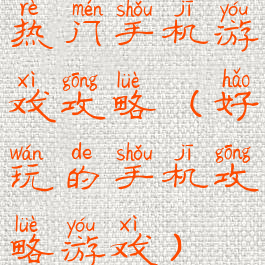 rè mén shǒu jī yóu
热门手机游
xì gōng lüè hǎo
戏攻略（好
wán de shǒu jī gōng
玩的手机攻
lüè yóu xì
略游戏）